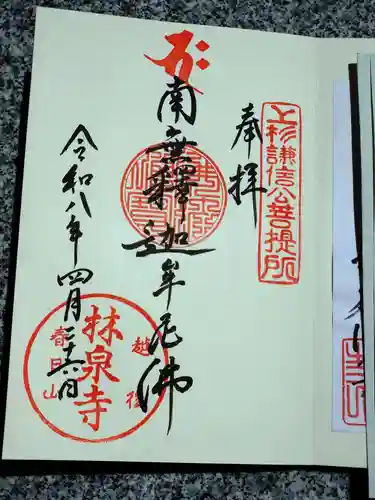 上杉謙信公菩提所
奉拝
南無釋迦牟尼佛
令和八年四月二十六日
越後
林泉寺
春日山